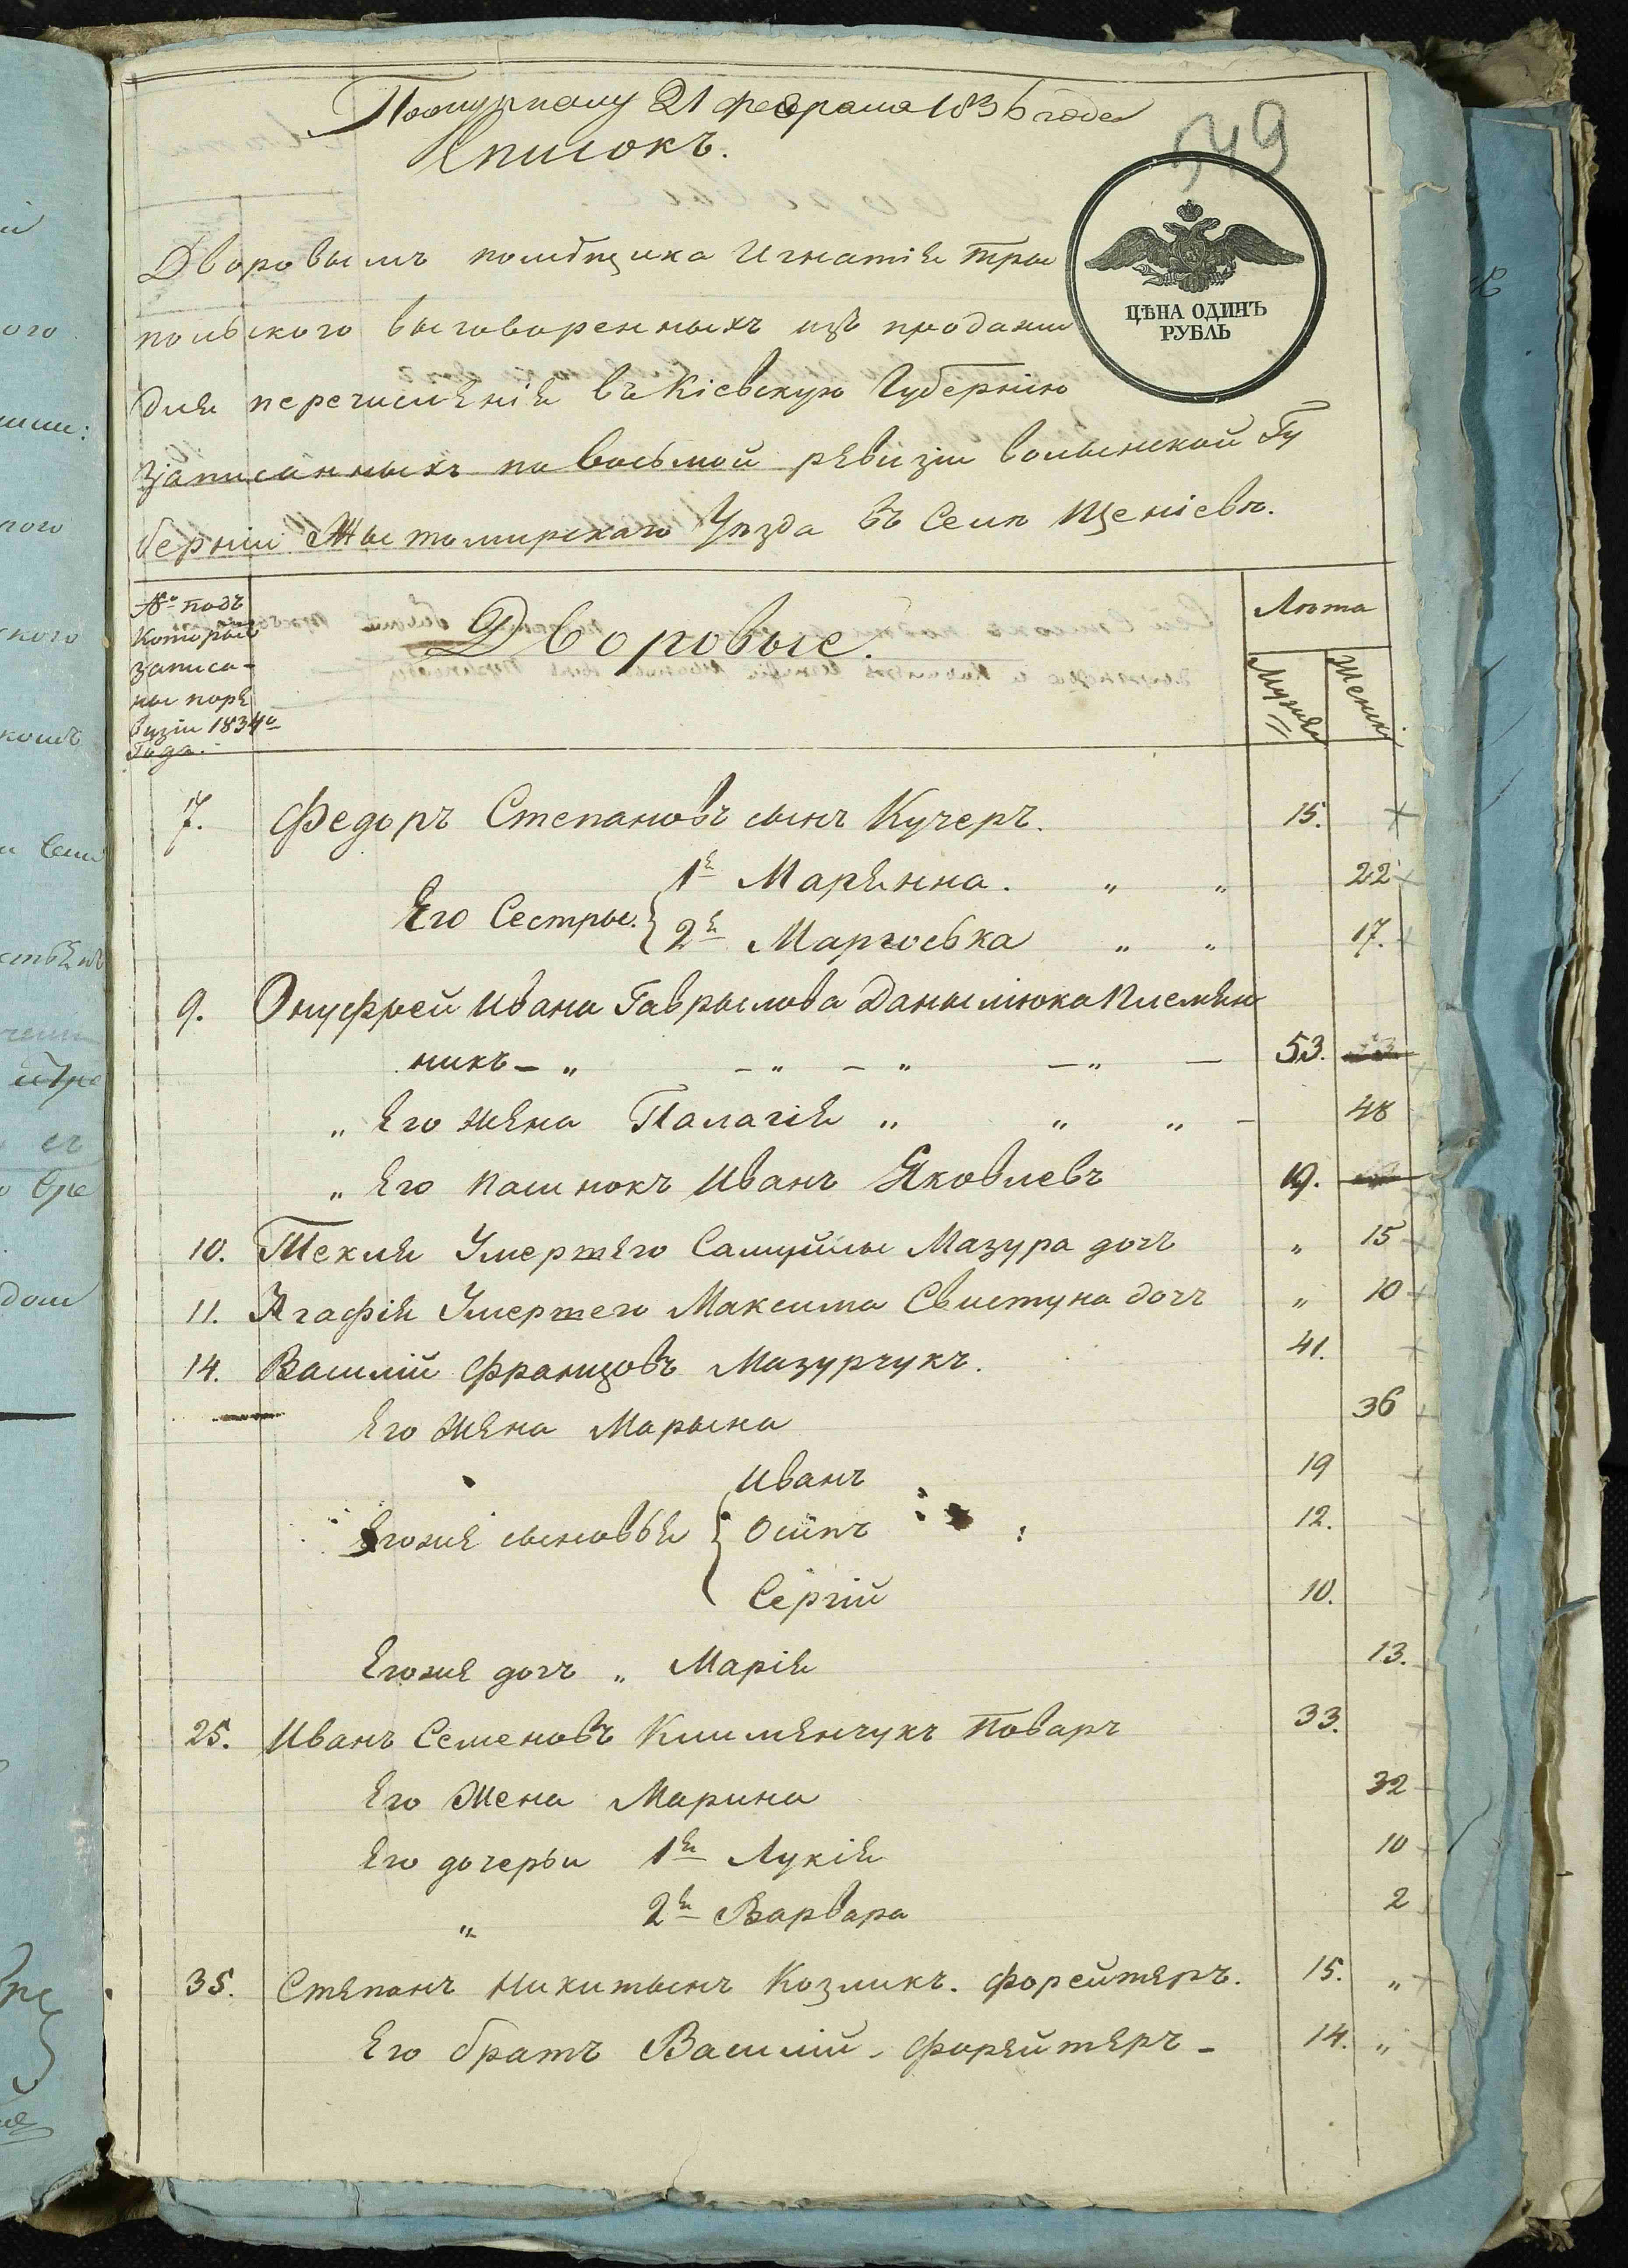 21 февраля 1836 года
549
Списокъ.
ЦѢНА ОДИНЪ
РУБЛЬ
Дворовымъ помѣщика Игнатія Тры
польского выговоренныхъ изъ продажи
для перечисленія въ Кіевскую Губернію
записанныхъ по восьмой ревизіи волынской Гу
берніи Жытомирскаго Уѣзда въ Селѣ Щеніевѣ.
№ подъ
которымъ
записа-
ны по ре
визіи 1834го
Года.
Дворовые.
Лѣта
Мужеск
Женск
7. Федоръ Степановъ сынъ Кучеръ. 15.
Его Сестры. 1я Маріянна. " " 22
2я Маргоська " " 17.
9. Онуфрей Ивана Гаврылова Данылюка племян
никъ - " - " - " - " - 53.
" Его жена Палагія " " " - 48
" Его пасинокъ Иванъ Яковлевъ 19.
10. Текля Умершего Самуйлы Мазура дочъ " 15
11. Агафія Умершего Максима Свистуна дочъ " 10
14. Василій Францовъ Мазурчукъ. 41.
Его жена Марына 36
Иванъ 19
Егоже сыновья Осипъ 12.
Сергій 10.
Егоже дочъ " Марія 13.
25. Иванъ Семеновъ Климянчукъ Поваръ 33.
Его Жена Марина 32
Его дочерьи 1я Лукія 10
" 2я Варвара 2
35. Степанъ Никитынъ Козликъ. форейтеръ. 15. "
Его братъ Василій - форейтеръ - 14. "